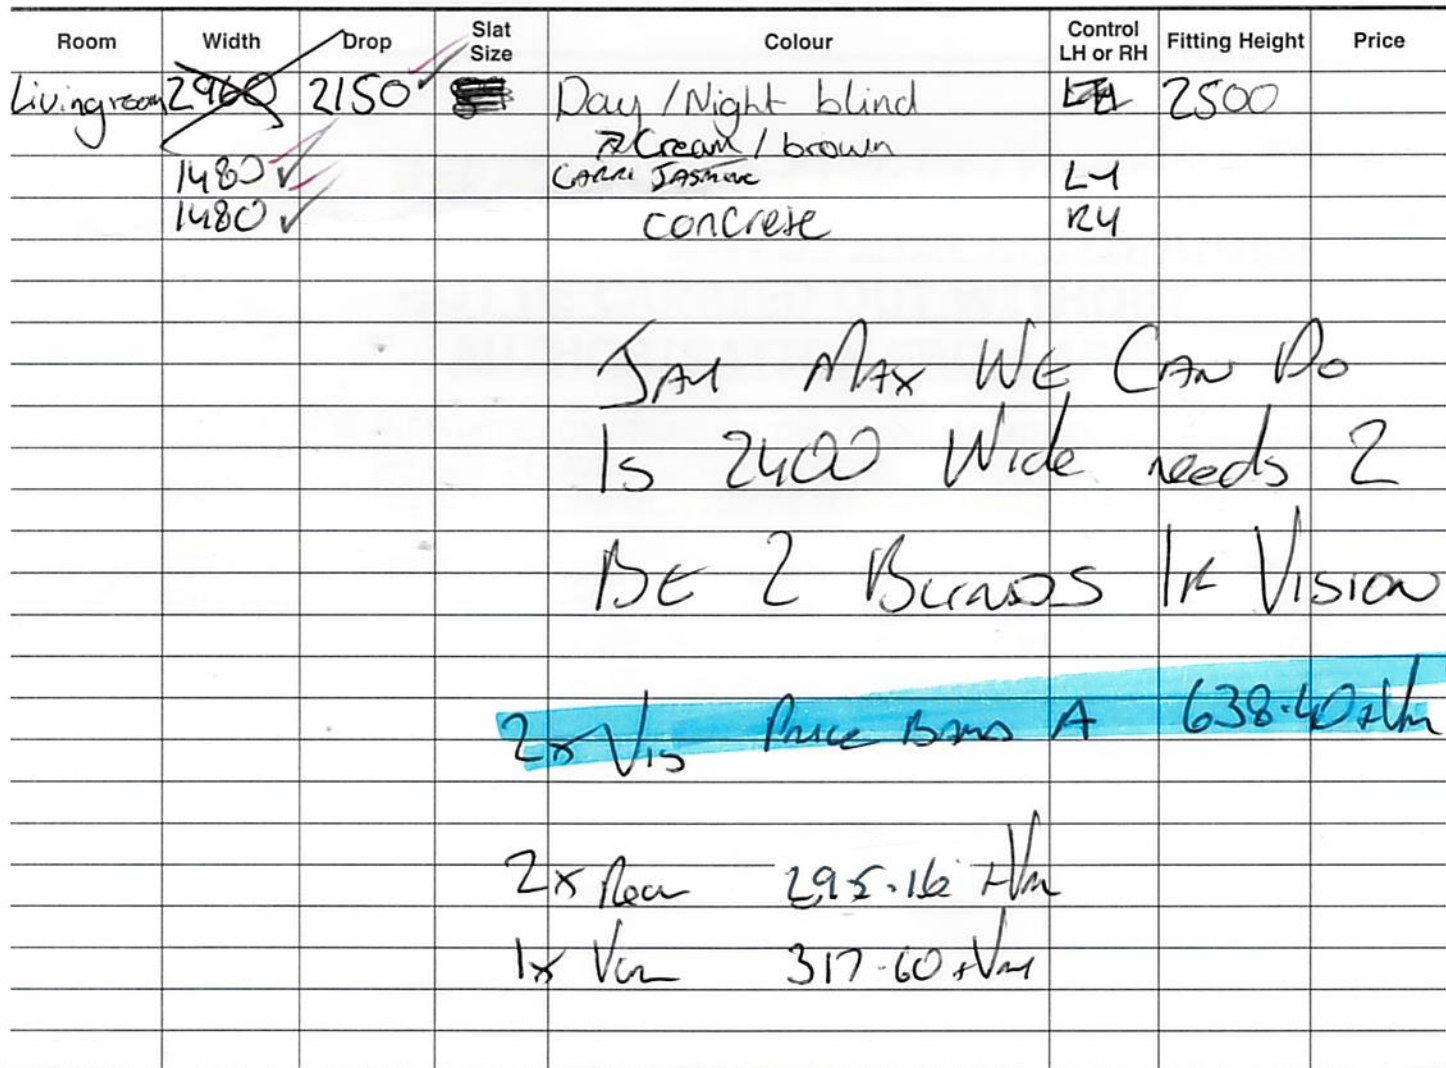 Room Width Drop Slat Size Colour Control LH or RH Fitting Height Price
Livingroom 2960 2150 Day / Night blind LH 2500
Cream / brown
1480 JASMINE LH
1480 concrete RH
MAX WE CAN DO
IS 2400 Wide needs 2
BE 2 BLINDS IF VISION
2x VIS PRICE BAND A 638.40 + VAT
2x 295.16 + VAT
1x 317.60 + VAT